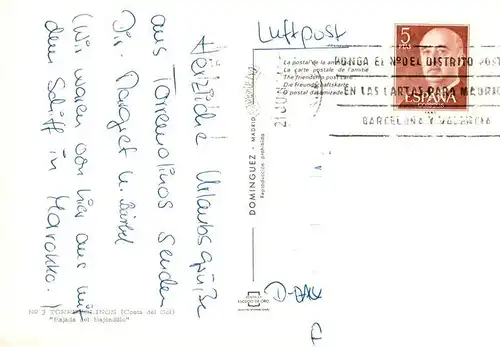 Luftpost
Herzliche Urlaubsgrüße
aus Torremolinos senden
Dir Margret u. Bärbel
(Wir waren von hier aus mit
dem Schiff in Marokko.)
La postal de la amistad
La carte postale de l'amitié
The friendship post card
Die freundschaftskarte
O postal da amizade
5
PTS
ESPAÑA
PONGA EL Nº DEL DISTRITO POST
EN LAS CARTAS PARA MADRID
BARCELONA Y VALENCIA
21 JUN
DOMINGUEZ - MADRID
Reproducción prohibida
ESCUDO DE ORO
Nº 3 TORREMOLINOS (Costa del Sol)
"Bajada del Bajondillo"